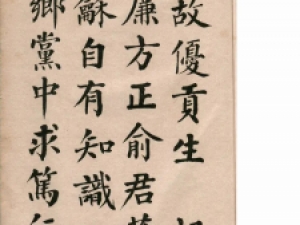 故優貢生
廉方正俞君
穌自有知識
鄉黨中求篤